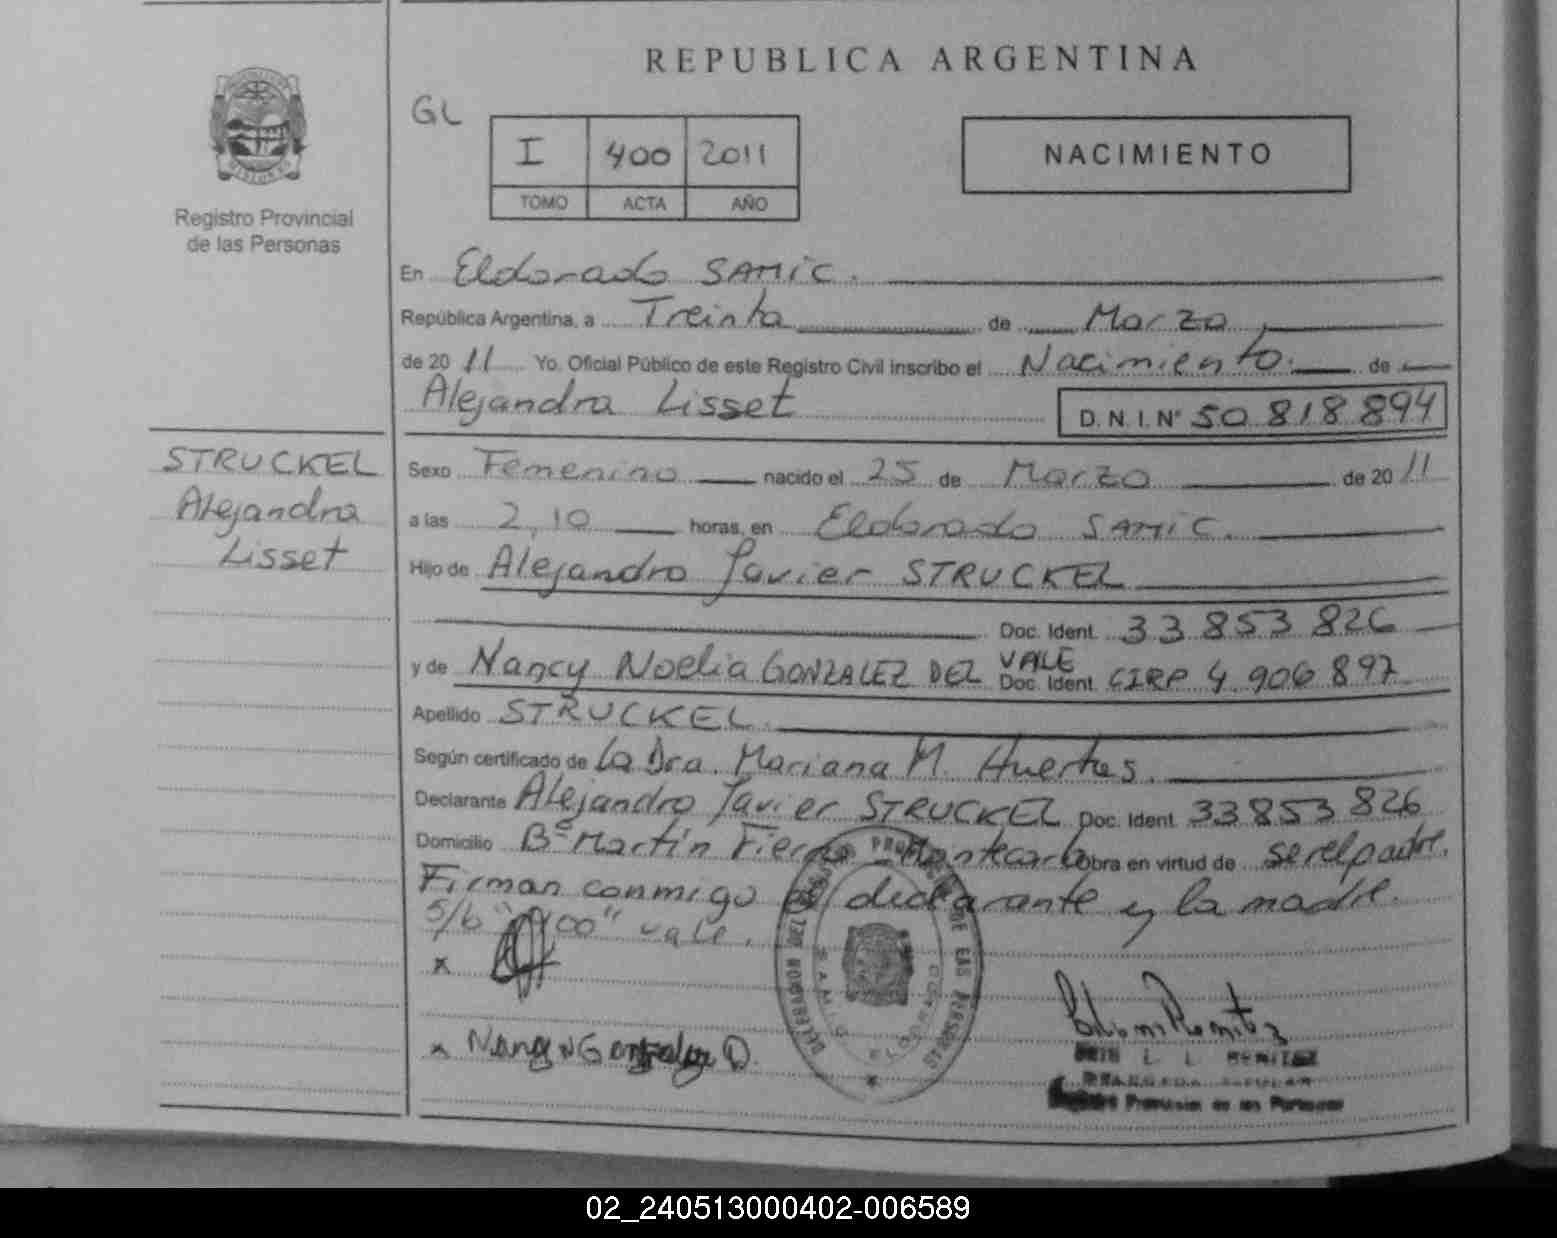 REPUBLICA ARGENTINA
GL
I 400 2011
TOMO ACTA AÑO
NACIMIENTO
Registro Provincial
de las Personas
En Eldorado SAMIC.
República Argentina, a Treinta de Marzo
de 20 11 Yo. Oficial Público de este Registro Civil inscribo el Nacimiento. de
Alejandra Lisset D. N. I. Nº 50 818 894
STRUCKEL
Alejandra
Lisset
Sexo Femenino nacido el 25 de Marzo de 20 11
a las 2,10 horas, en Eldorado SAMIC.
Hijo de Alejandro Javier STRUCKEL
Doc. Ident. 33 853 826
y de Nancy Noelia GONZALEZ DEL VALE Doc. Ident. CIRP 4 906 897
Apellido STRUCKEL.
Según certificado de La Dra. Mariana M. Huertas.
Declarante Alejandro Javier STRUCKEL Doc. Ident. 33 853 826
Domicilio Bº Martín Fierro Montecarlo obra en virtud de ser el padre.
Firman conmigo el declarante y la madre.
S/b "400" vale.
x
x Nancy N Gonzalez D.
BENITEZ
Registro Provincial de las Personas
02_240513000402-006589